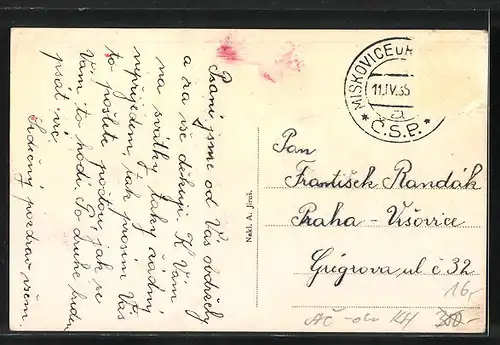 Psaní jsme od Vás obdržely
a za vše děkuji. K Vám
na svátky taky žádný
nepřijedem, tak prosím Vás
to pošlete poštou, jak se
Vám to hodí. Po druhé budu
psát víc.
Srdečný pozdrav všem.
Nakl. A. Jiruš.
MISKOVICE u K
11.IV.35
a
* Č.S.P. *
Pan
František Randák
Praha – Vršovice
Grégrova ul č 32
16,-
AČ - okr KH 350.-